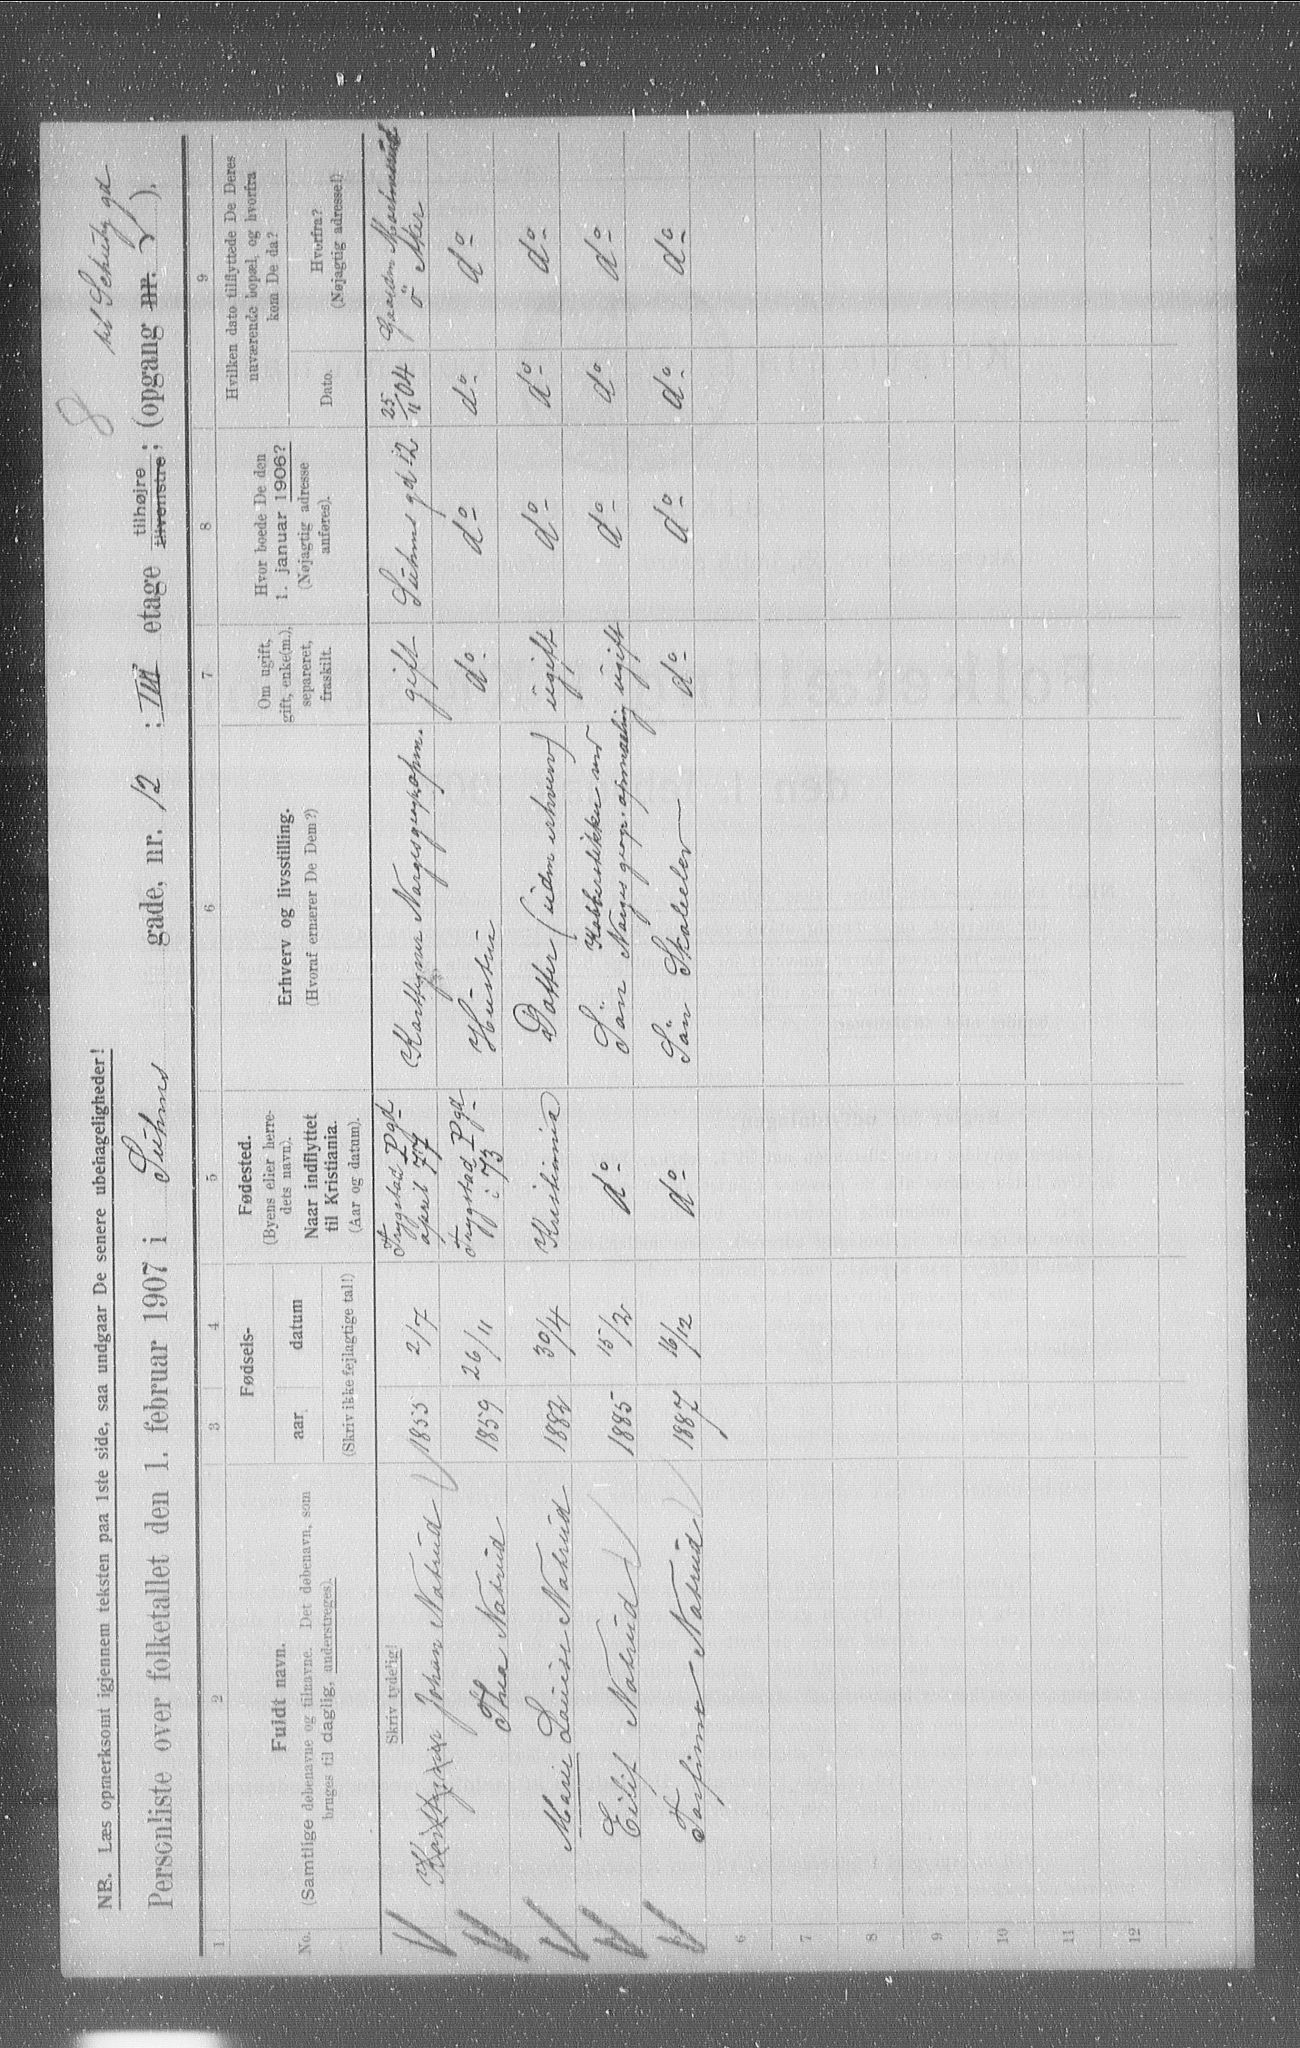 8
til Schultz gd
NB. Læs opmerksomt igjennem teksten paa 1ste side, saa undgaar De senere ubehageligheder!
Personliste over folketallet den 1. februar 1907 i Suhms gade, nr. 12 : III etage tilhøjre tilvenstre; (opgang nr. ).
1 2 3 4 5 6 7 8 9
No.
Fuldt navn.
(Samtlige døbenavne og tilnavne. Det døbenavn, som
bruges til daglig, understreges).
Skriv tydelig!
Fødsels-
aar datum
(Skriv ikke fejlagtige tal!)
Fødested.
(Byens eller herre-
dets navn).
Naar indflyttet
til Kristiania.
(Aar og datum).
Erhverv og livsstilling.
(Hvoraf ernærer De Dem?)
Om ugift,
gift, enke(m.),
separeret,
fraskilt.
Hvor boede De den
1. januar 1906?
(Nøjagtig adresse
anføres).
Hvilken dato tilflyttede De Deres
nuværende bopæl, og hvorfra
kom De da?
Dato.
Hvorfra?
(Nøjagtig adresse!)
Johan Natrud 1855 2/7 Trygstad Pgd april 77 gift Suhms gd 12 25/11 04 Aker
Thea Natrud 1859 26/11 Trygstad Pgd i 73 Hustru do do do do
Marie Louise Natrud 1882 30/4 Kristiania Datter (uden erhverv) ugift do do do
Eilif Natrud 1885 15/2 do Sön Kobberstikker ved Norges geogr. opmaaling ugift do do do
Torfinn Natrud 1887 16/12 do Sön Skoleelev do do do do
6
7
8
9
10
11
12